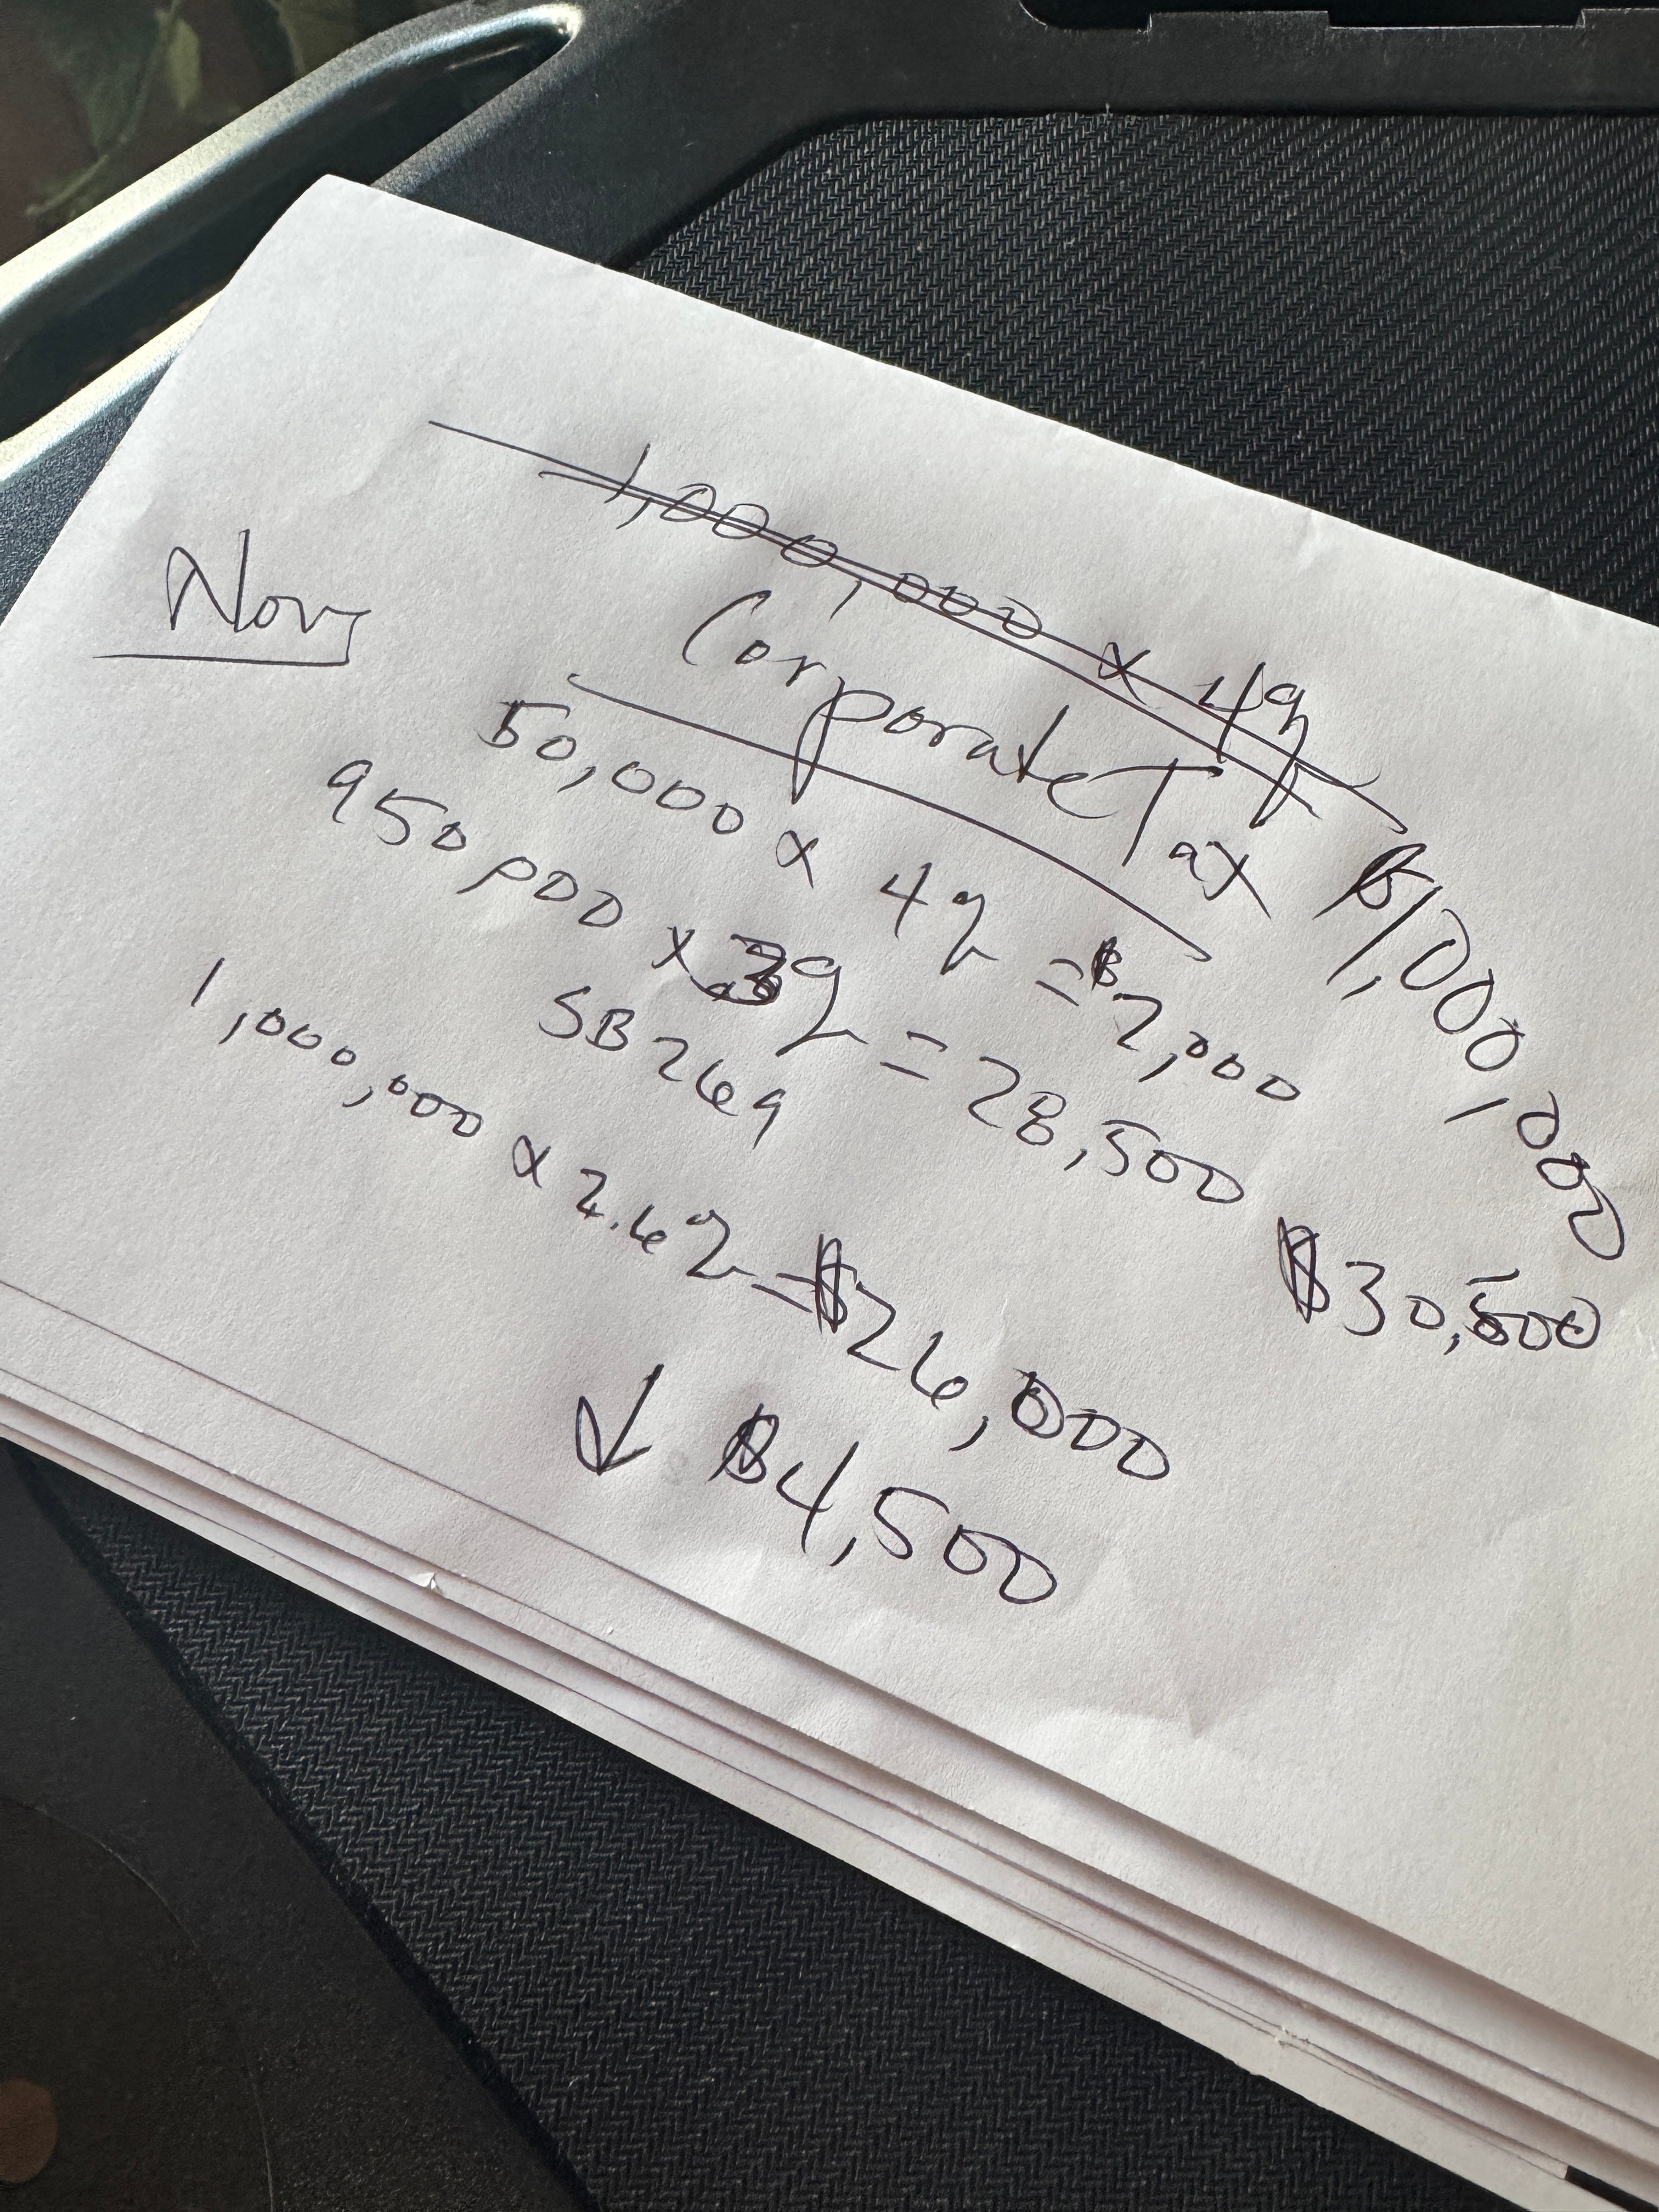 1,000,000 x 4%
Now
Corporate Tax $1,000,000
50,000 x 4% = $2,000
950,000 x 3% = 28,500
$30,500
SB269
1,000,000 x 2.6% = $26,000
↓ $4,500